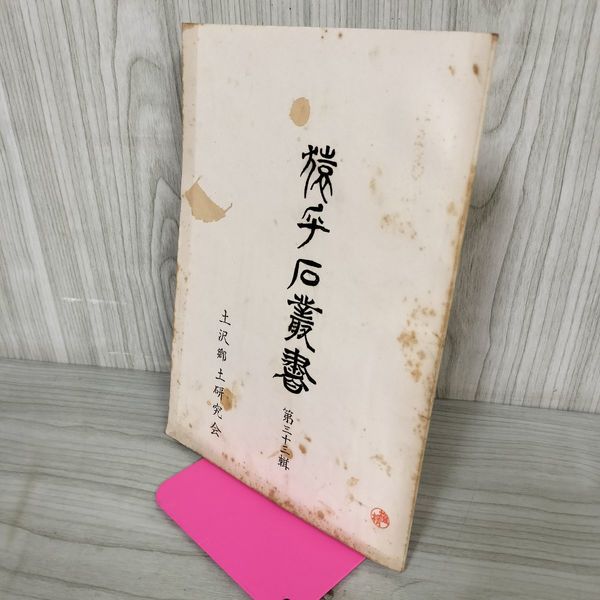 猿乎石叢書
第三十三輯
土沢郷土研究会